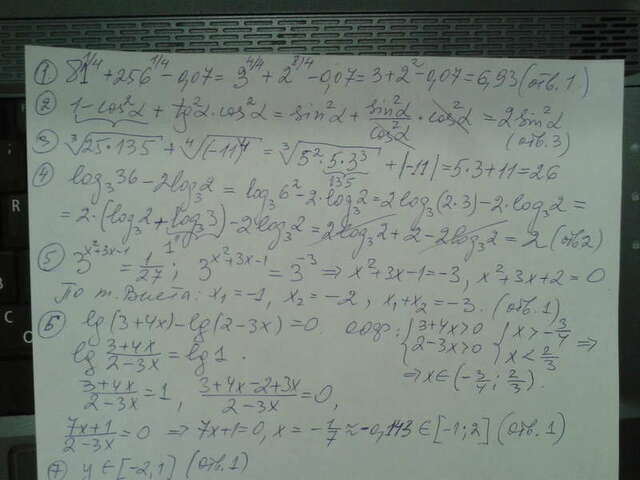 ① 81^1/4 + 256^1/4 - 0,07 = 3^4/4 + 2^8/4 - 0,07 = 3 + 2² - 0,07 = 6,93 (отв. 1.)
② 1 - cos²α + tg²α · cos²α = sin²α + sin²α/cos²α · cos²α = 2 sin²α (отв. 3)
③ ∛(25·135) + ∜((-11)⁴) = ∛(5²·5·3³) + |-11| = 5·3 + 11 = 26
135
④ log₃36 - 2log₃2 = log₃6² - 2·log₃2 = 2log₃(2·3) - 2·log₃2 =
= 2·(log₃2 + log₃3) - 2log₃2 = 2log₃2 + 2 - 2log₃2 = 2 (отв 2)
1
⑤ 3^(x²+3x-1) = 1/27; 3^(x²+3x-1) = 3^-3 ⇒ x²+3x-1 = -3, x²+3x+2 = 0
По т. Виета: x₁ = -1, x₂ = -2, x₁+x₂ = -3. (отв. 1)
⑥ lg(3+4x) - lg(2-3x) = 0. оодр: { 3+4x>0 2-3x>0 { x > -3/4 x < 2/3 ⇒
lg (3+4x)/(2-3x) = lg 1. ⇒ x ∈ (-3/4; 2/3).
(3+4x)/(2-3x) = 1, (3+4x-2+3x)/(2-3x) = 0,
(7x+1)/(2-3x) = 0 ⇒ 7x+1 = 0, x = -1/7 ≈ -0,143 ∈ [-1; 2] (отв. 1)
⑦ y ∈ [-2, 1] (отв. 1)